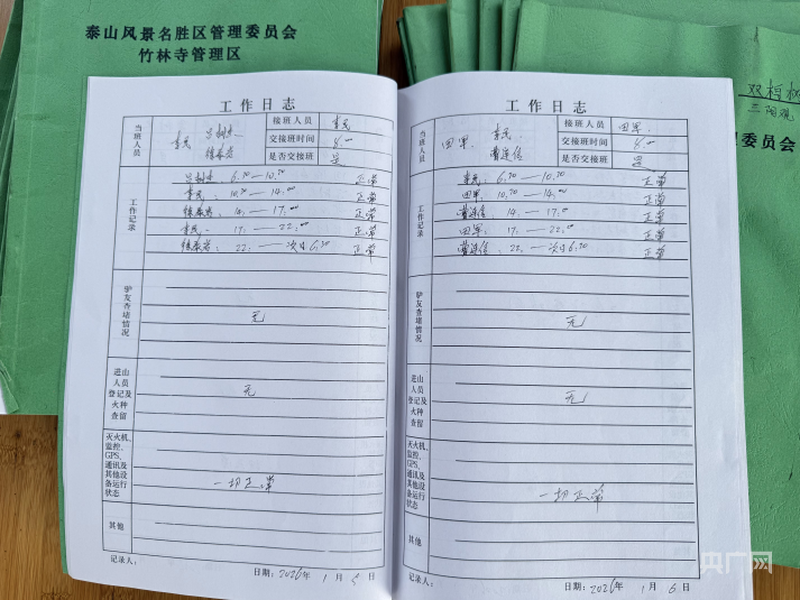 泰山风景名胜区管理委员会
竹林寺管理区
双
三阳观
管理委员会
工作日志
当班人员
李民
接班人员 李民
交接班时间 8:00
是否交接班 是
工作记录
6:30—10:30 正常
李民: 10:30—14:00 正常
14:—17:00 正常
李民: 17:—22:00 正常
22:—次日6:30 正常
驴友查堵情况
无
进山人员登记及火种查留
无
灭火机、监控、GPS、通讯及其他设备运行状态
一切正常
其他
记录人:
日期: 2026年 1月 5日
工作日志
当班人员
田军 李民
曹连信
接班人员 田军
交接班时间 8:00
是否交接班 是
工作记录
李民: 6:30—10:30 正常
田军: 10:30—14:00 正常
曹连信: 14:—17:00 正常
田军: 17:—22:00 正常
曹连信: 22:—次日6:30 正常
驴友查堵情况
无
进山人员登记及火种查留
无
灭火机、监控、GPS、通讯及其他设备运行状态
一切正常
其他
记录人:
日期: 2026年 1月 6日
央广网